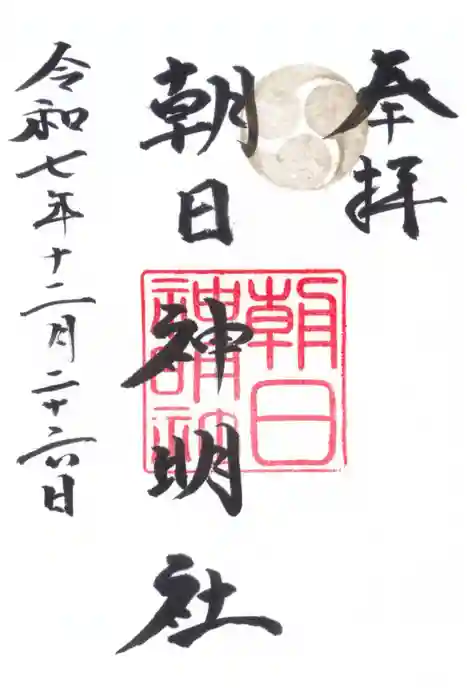 奉拝
朝日神明社
朝日
神明社
令和七年十二月二十六日